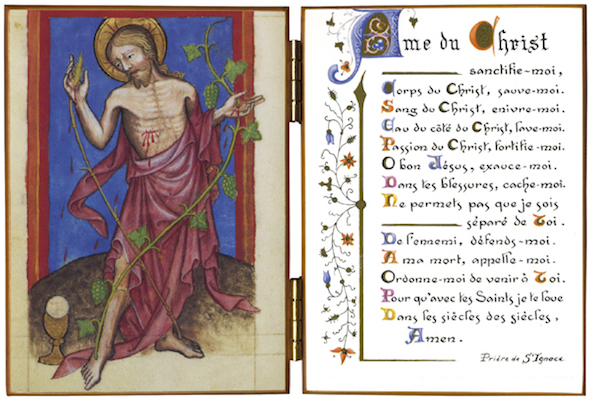 Ame du Christ
sanctifie-moi,
Corps du Christ, sauve-moi.
Sang du Christ, enivre-moi.
Eau du côté du Christ, lave-moi.
Passion du Christ, fortifie-moi.
O bon Jésus, exauce-moi.
Dans tes blessures, cache-moi.
Ne permets pas que je sois
séparé de Toi.
De l'ennemi, défends-moi.
A ma mort, appelle-moi.
Ordonne-moi de venir à Toi.
Pour qu'avec tes Saints je te loue
Dans les siècles des siècles,
Amen.
Prière de St Ignace